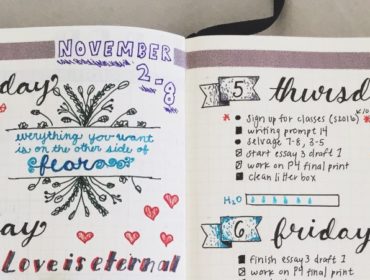 NOVEMBER
2-8
day
everything you want
is on the other side of
fear
ay
Love is eternal
5 thursd
sign up for classes (S2016)
writing prompt 14
selvage 7-8, 3-5
start essay 3 draft 1
work on P4 final print
clean litter box
H2O
6 friday
finish essay 3 draft 1
work on P4 final print